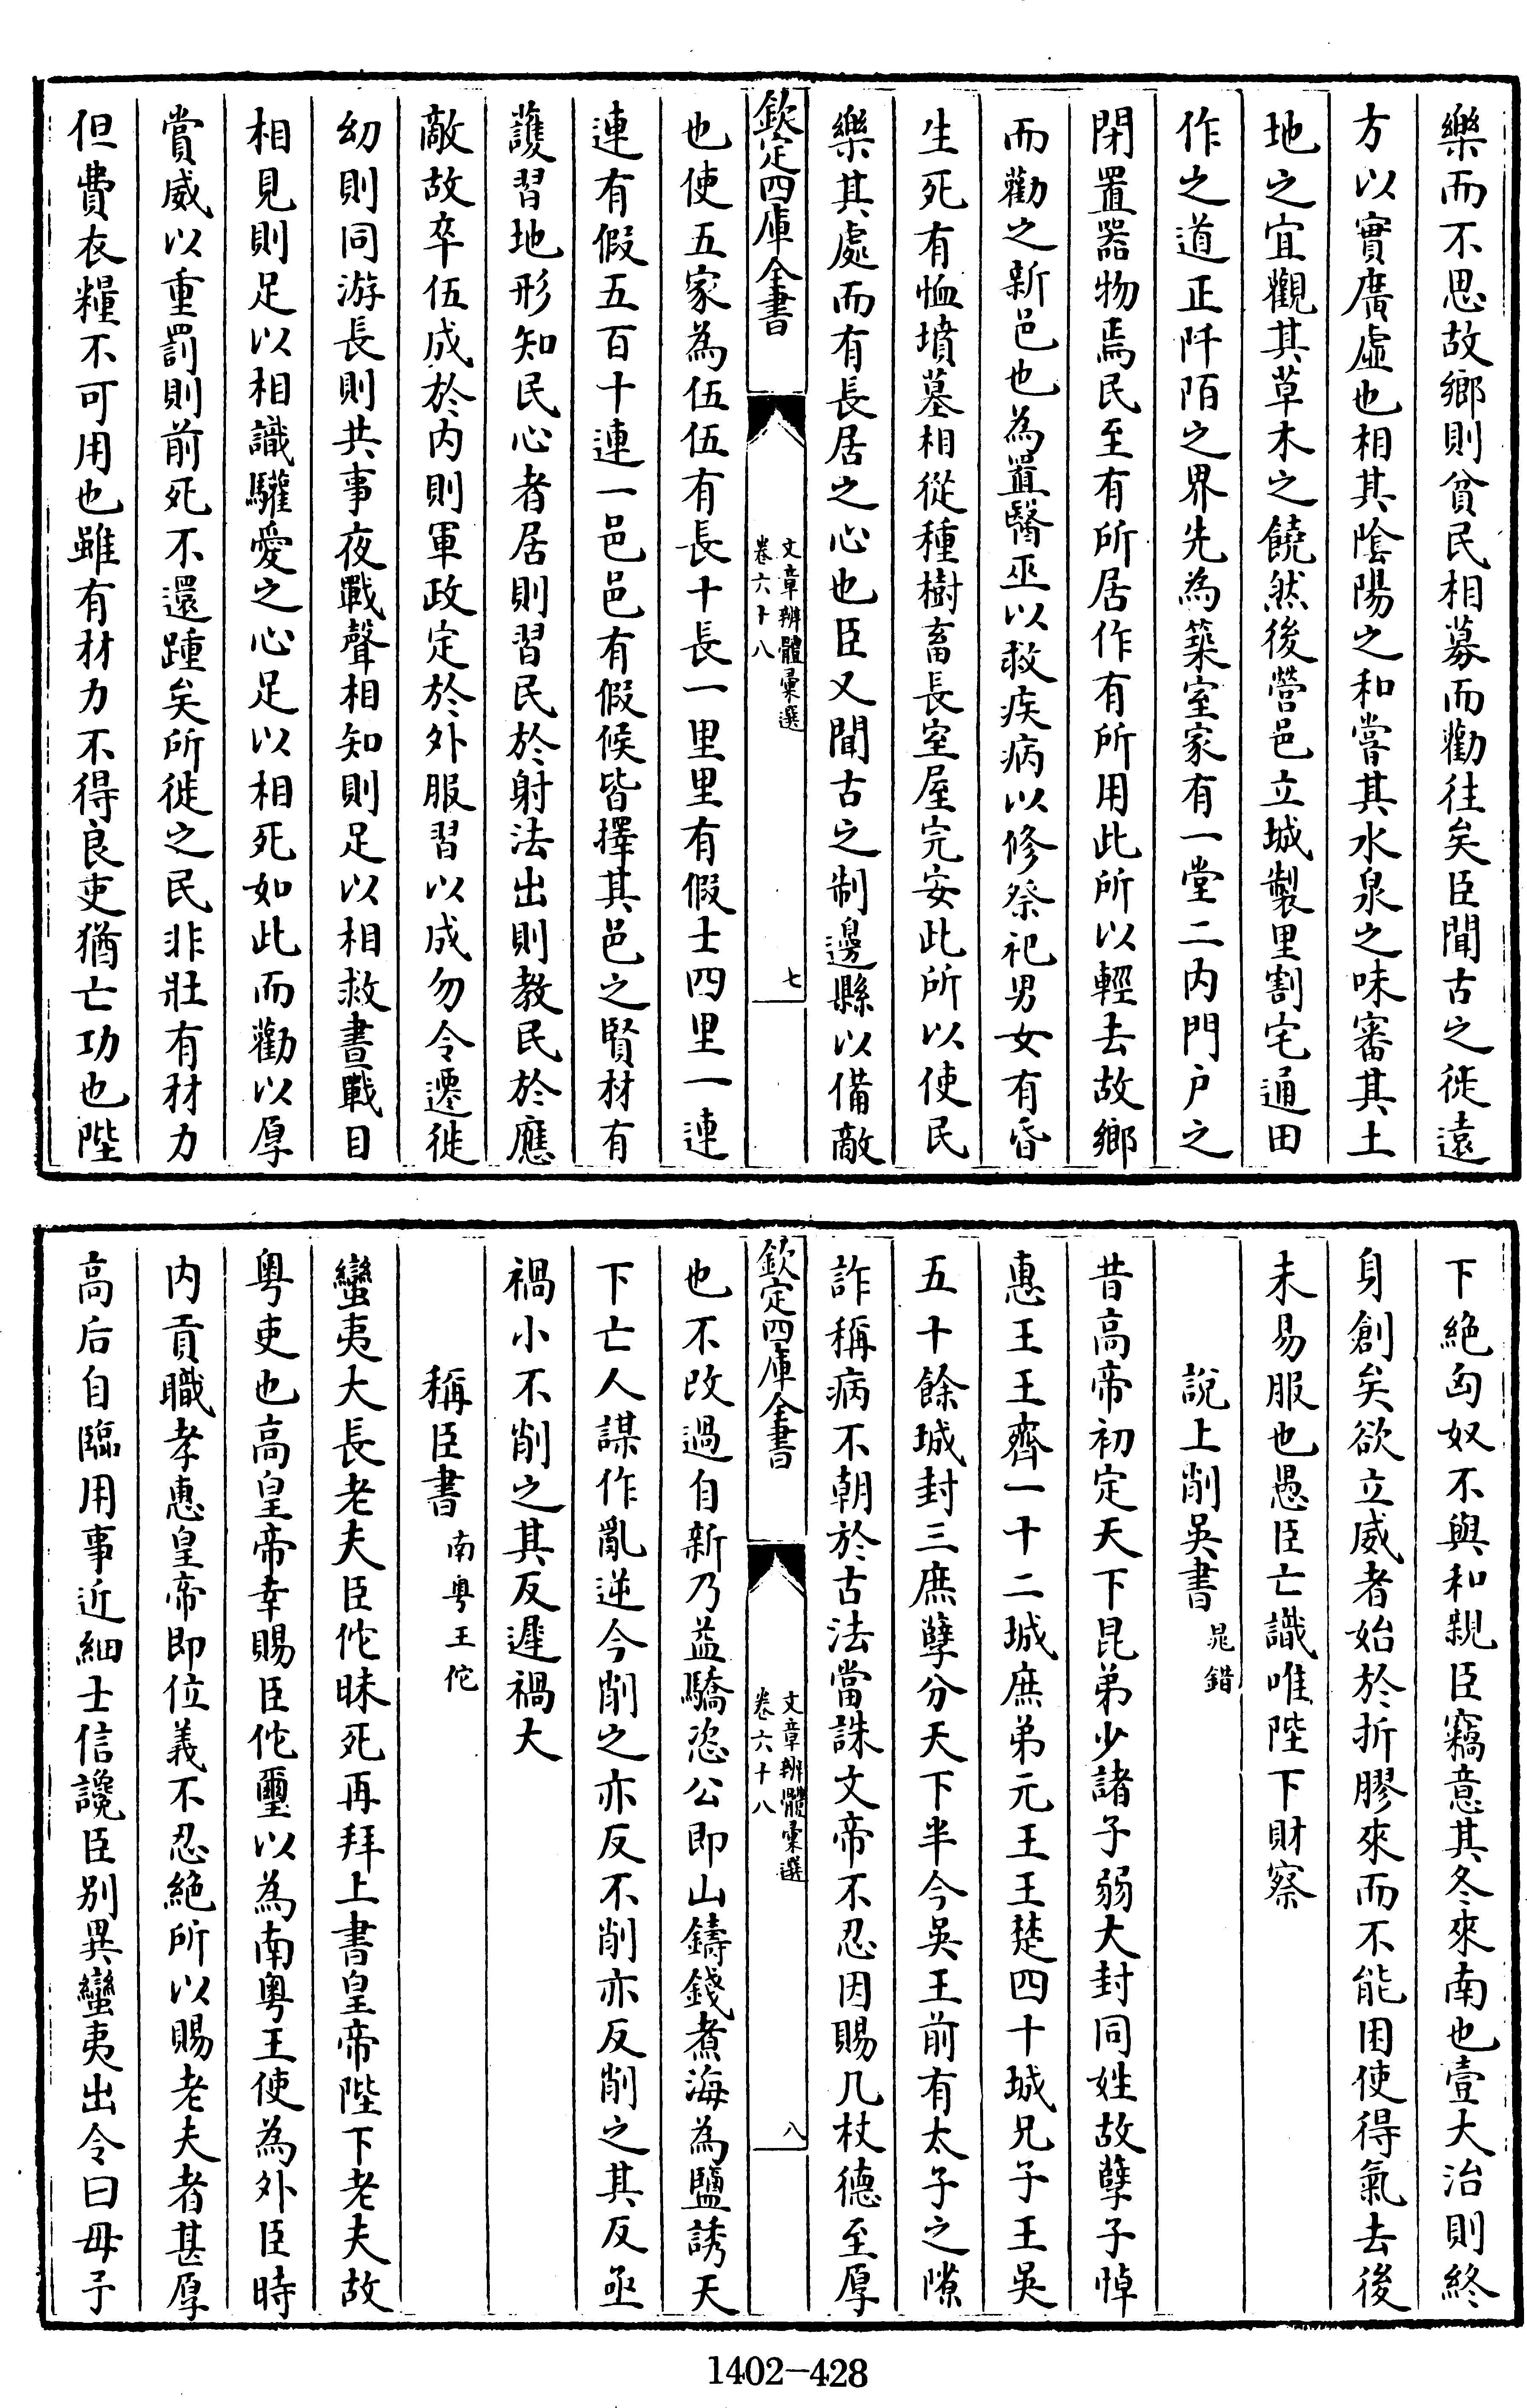 樂而不思故鄉則貧民相募而勸往矣臣聞古之徙遠
方以實廣虛也相其陰陽之和嘗其水泉之味審其土
地之宜觀其草木之饒然後營邑立城製里割宅通田
作之道正阡陌之界先為築室家有一堂二内門户之
閉置器物焉民至有所居作有所用此所以輕去故鄉
而勸之新邑也為置醫巫以救疾病以修祭祀男女有昏
生死有恤墳墓相從種樹畜長室屋完安此所以使民
樂其處而有長居之心也臣又聞古之制邊縣以備敵
欽定四庫全書
文章辨體彙選
卷六十八
七
也使五家為伍伍有長十長一里里有假士四里一連
連有假五百十連一邑邑有假候皆擇其邑之賢材有
護習地形知民心者居則習民於射法出則教民於應
敵故卒伍成於内則軍政定於外服習以成勿令遷徙
幼則同游長則共事夜戰聲相知則足以相救晝戰目
相見則足以相識驩愛之心足以相死如此而勸以厚
賞威以重罰則前死不還踵矣所徙之民非壯有材力
但費衣糧不可用也雖有材力不得良吏猶亡功也陛
下絶匈奴不與和親臣竊意其冬來南也壹大治則終
身創矣欲立威者始於折膠來而不能困使得氣去後
未易服也愚臣亡識唯陛下財察
說上削吳書 晁錯
昔高帝初定天下昆弟少諸子弱大封同姓故孽子悼
惠王王齊一十二城庶弟元王王楚四十城兄子王吳
五十餘城封三庶孽分天下半今吳王前有太子之隙
詐稱病不朝於古法當誅文帝不忍因賜几杖德至厚
欽定四庫全書
文章辨體彙選
卷六十八
八
也不改過自新乃益驕恣公即山鑄錢煮海為鹽誘天
下亡人謀作亂逆今削之亦反不削亦反削之其反亟
禍小不削之其反遲禍大
稱臣書 南粤王佗
蠻夷大長老夫臣佗昧死再拜上書皇帝陛下老夫故
粤吏也高皇帝幸賜臣佗璽以為南粤王使為外臣時
内貢職孝惠皇帝即位義不忍絶所以賜老夫者甚厚
高后自臨用事近細士信讒臣别異蠻夷出令曰毋予
1402-428